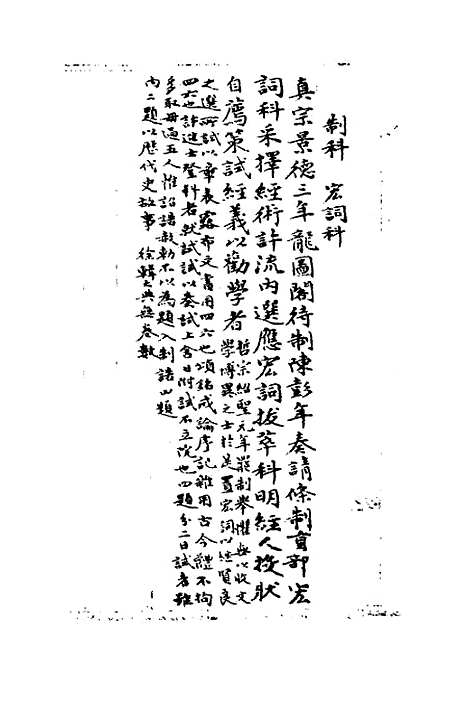 制科 宏詞科
真宗景德三年龍圖閣待制陳彭年奏請條制吏部宏
詞科采擇經術許流內選應宏詞拔萃科明經人投狀
自薦策試經義以勸學者
哲宗紹聖元年罷制舉懼無以收文
學博異之士於是置宏詞以繼賢良
之選所試以章表露布文書用四六也頌銘戒論序記雜用古今體不拘
四六也許進士登科者就試試以春試上舍日附試不立院也四題分二日試者雖
多取毋過五人惟詔誥赦勅不以為題入制誥四題
內二題以歷代史故事 徐輯大典無卷數